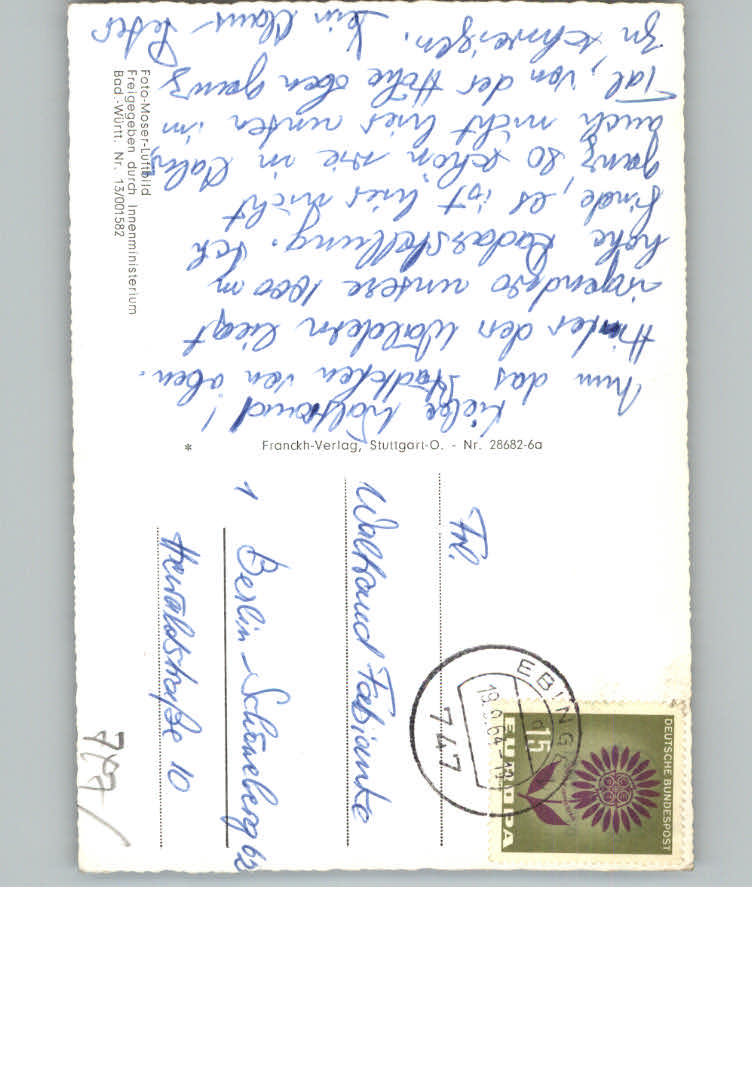 Liebe Waltraud!
Nun das Städtchen von oben.
Hinter den Wäldern liegt
irgendwo unsere 1000 m
hohe Radarstellung. Ich
finde, es ist hier nicht
ganz so schön wie in Calw,
auch nicht hier unten im
Tal, von der Höhe oben ganz
zu schweigen. Dein Claus-Peter
Foto-Moser-Luftbild
Freigegeben durch Innenministerium
Bad.-Württ. Nr. 13/001582
* Franckh-Verlag, Stuttgart-O. - Nr. 28682-6a
Frl.
Waltraud Fabiunke
1 Berlin-Schöneberg 62
Hewaldstraße 10
EBINGEN
19.9.64
747
DEUTSCHE BUNDESPOST
15
EUROPA
CEPT